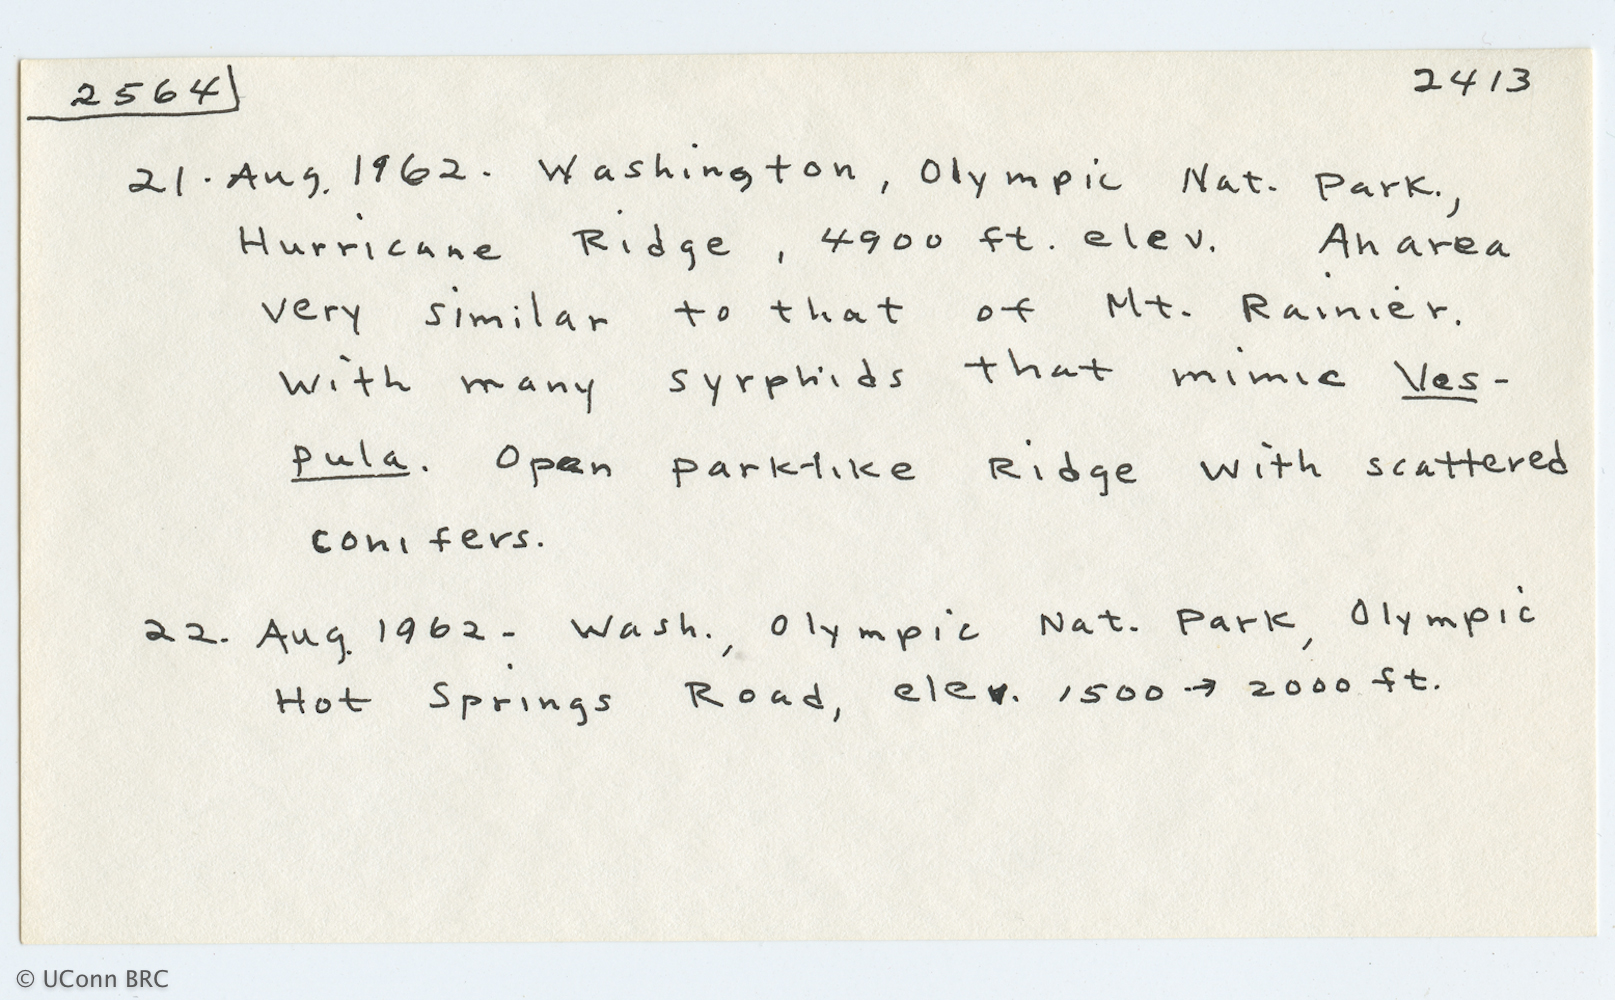 2564 2413
21. Aug. 1962. Washington, Olympic Nat. Park.,
Hurricane Ridge, 4900 ft. elev. An area
very similar to that of Mt. Rainier.
With many syrphids that mimic Ves-
pula. Open park-like Ridge with scattered
conifers.
22. Aug. 1962 - Wash., Olympic Nat. Park, Olympic
Hot Springs Road, elev. 1500 → 2000 ft.
© UConn BRC